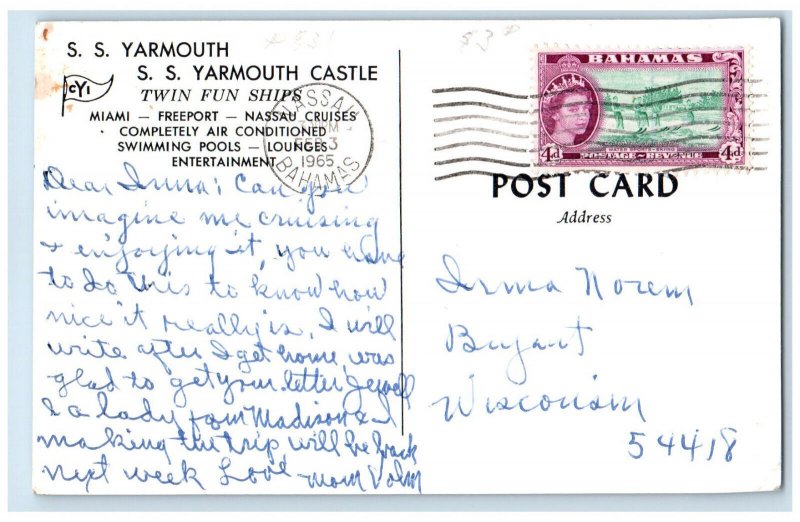 S. S. YARMOUTH
S. S. YARMOUTH CASTLE
CYI
TWIN FUN SHIPS
MIAMI – FREEPORT – NASSAU CRUISES
COMPLETELY AIR CONDITIONED
SWIMMING POOLS – LOUNGES
ENTERTAINMENT
NASSAU
PM
FEB 3
1965
BAHAMAS
Dear Irma: Can you
imagine me cruising
& enjoying it, you have
to do this to know how
nice it really is, I will
write after I get home, was
glad to get your letter Jewell
& a lady from Madison & I
making the trip will be back
next week Love Mom Volm
BAHAMAS
4d 4d
POSTAGE & REVENUE
POST CARD
Address
Irma Norem
Bryant
Wisconsin
54418